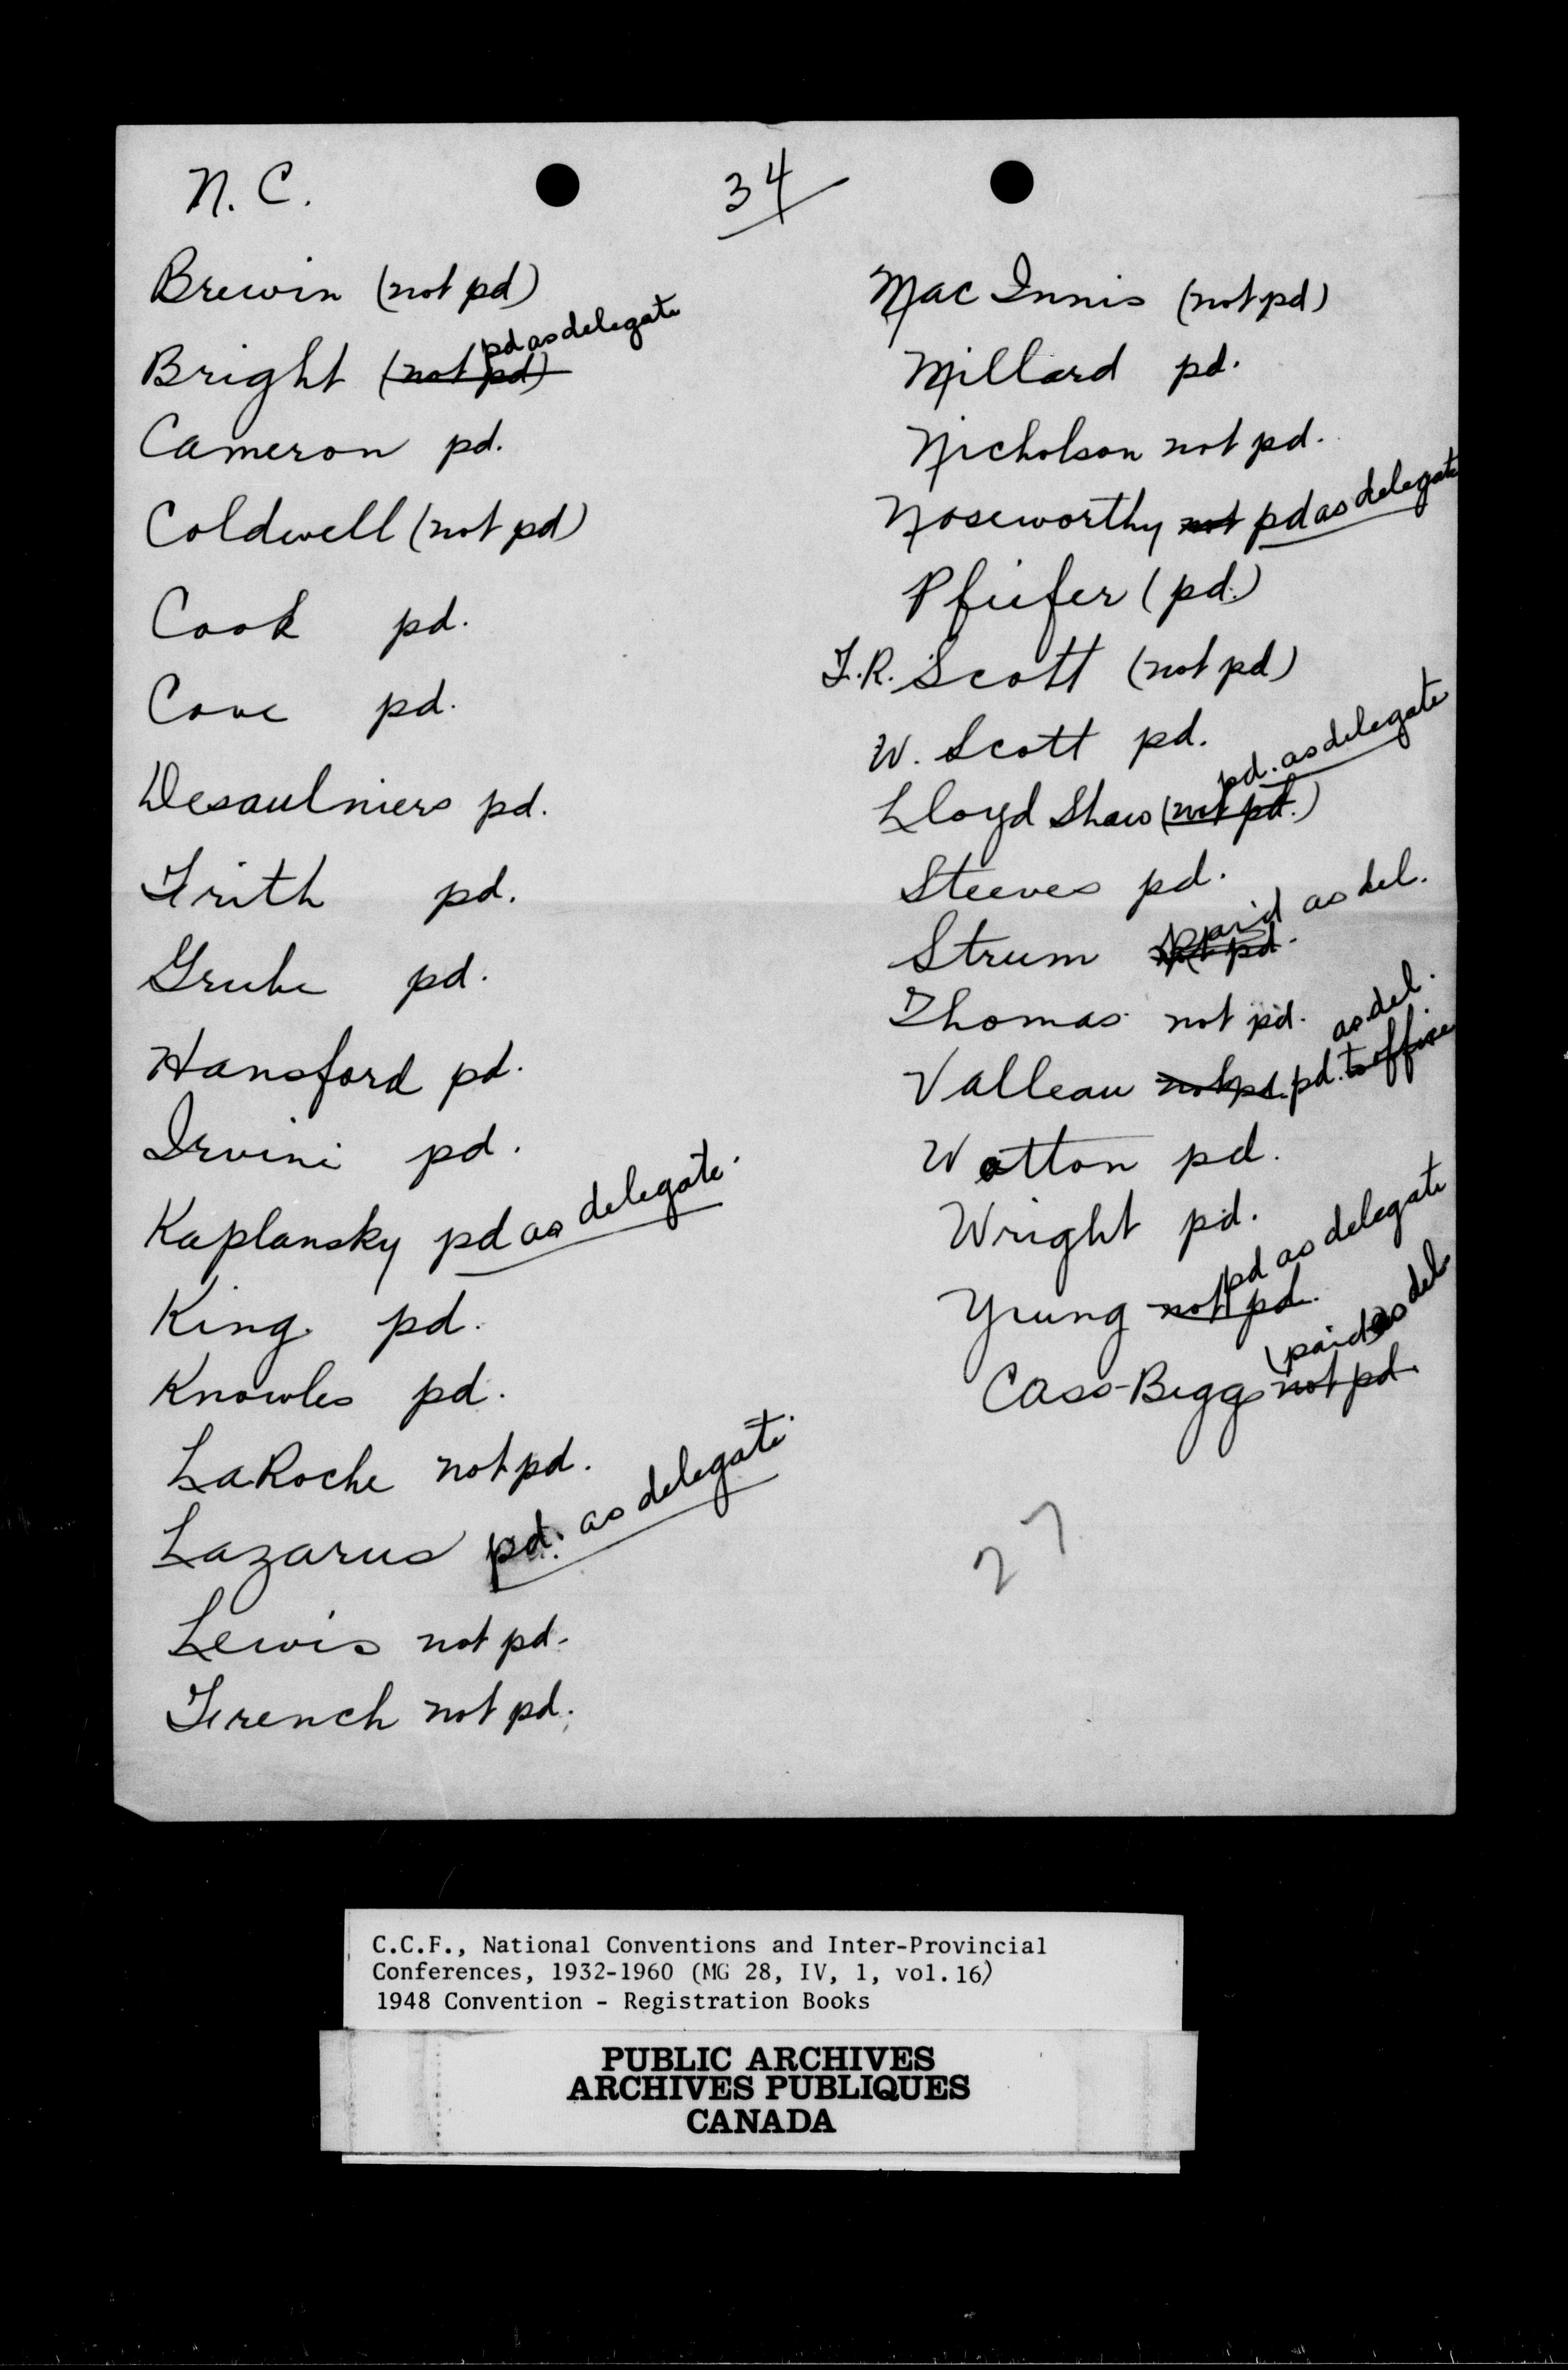 N. C.
34
Brewin (not pd)
pd as delegate
Bright (not pd)
Cameron pd.
Coldwell (not pd)
Cook pd.
Cove pd.
Desaulniers pd.
Frith pd.
Grube pd.
Hansford pd.
Irvine pd.
Kaplansky pd as delegate.
King pd.
Knowles pd.
LaRoche not pd.
Lazarus pd. as delegate.
Lewis not pd.
French not pd.
Mac Innis (not pd)
Millard pd.
Nicholson not pd.
Noseworthy not pd as delegate
Pfeifer (pd.)
F.R. Scott (not pd)
W. Scott pd.
pd. as delegate
Lloyd Shaw (not pd.)
Steeves pd.
paid as del.
Strum not pd.
Thomas not pd.
as del.
Valleau not pd. pd. to office
Watton pd.
Wright pd.
pd as delegate
Young not pd.
paid as del.
Cass-Beggs not pd.
27
C.C.F., National Conventions and Inter-Provincial
Conferences, 1932-1960 (MG 28, IV, 1, vol.16)
1948 Convention - Registration Books
PUBLIC ARCHIVES
ARCHIVES PUBLIQUES
CANADA